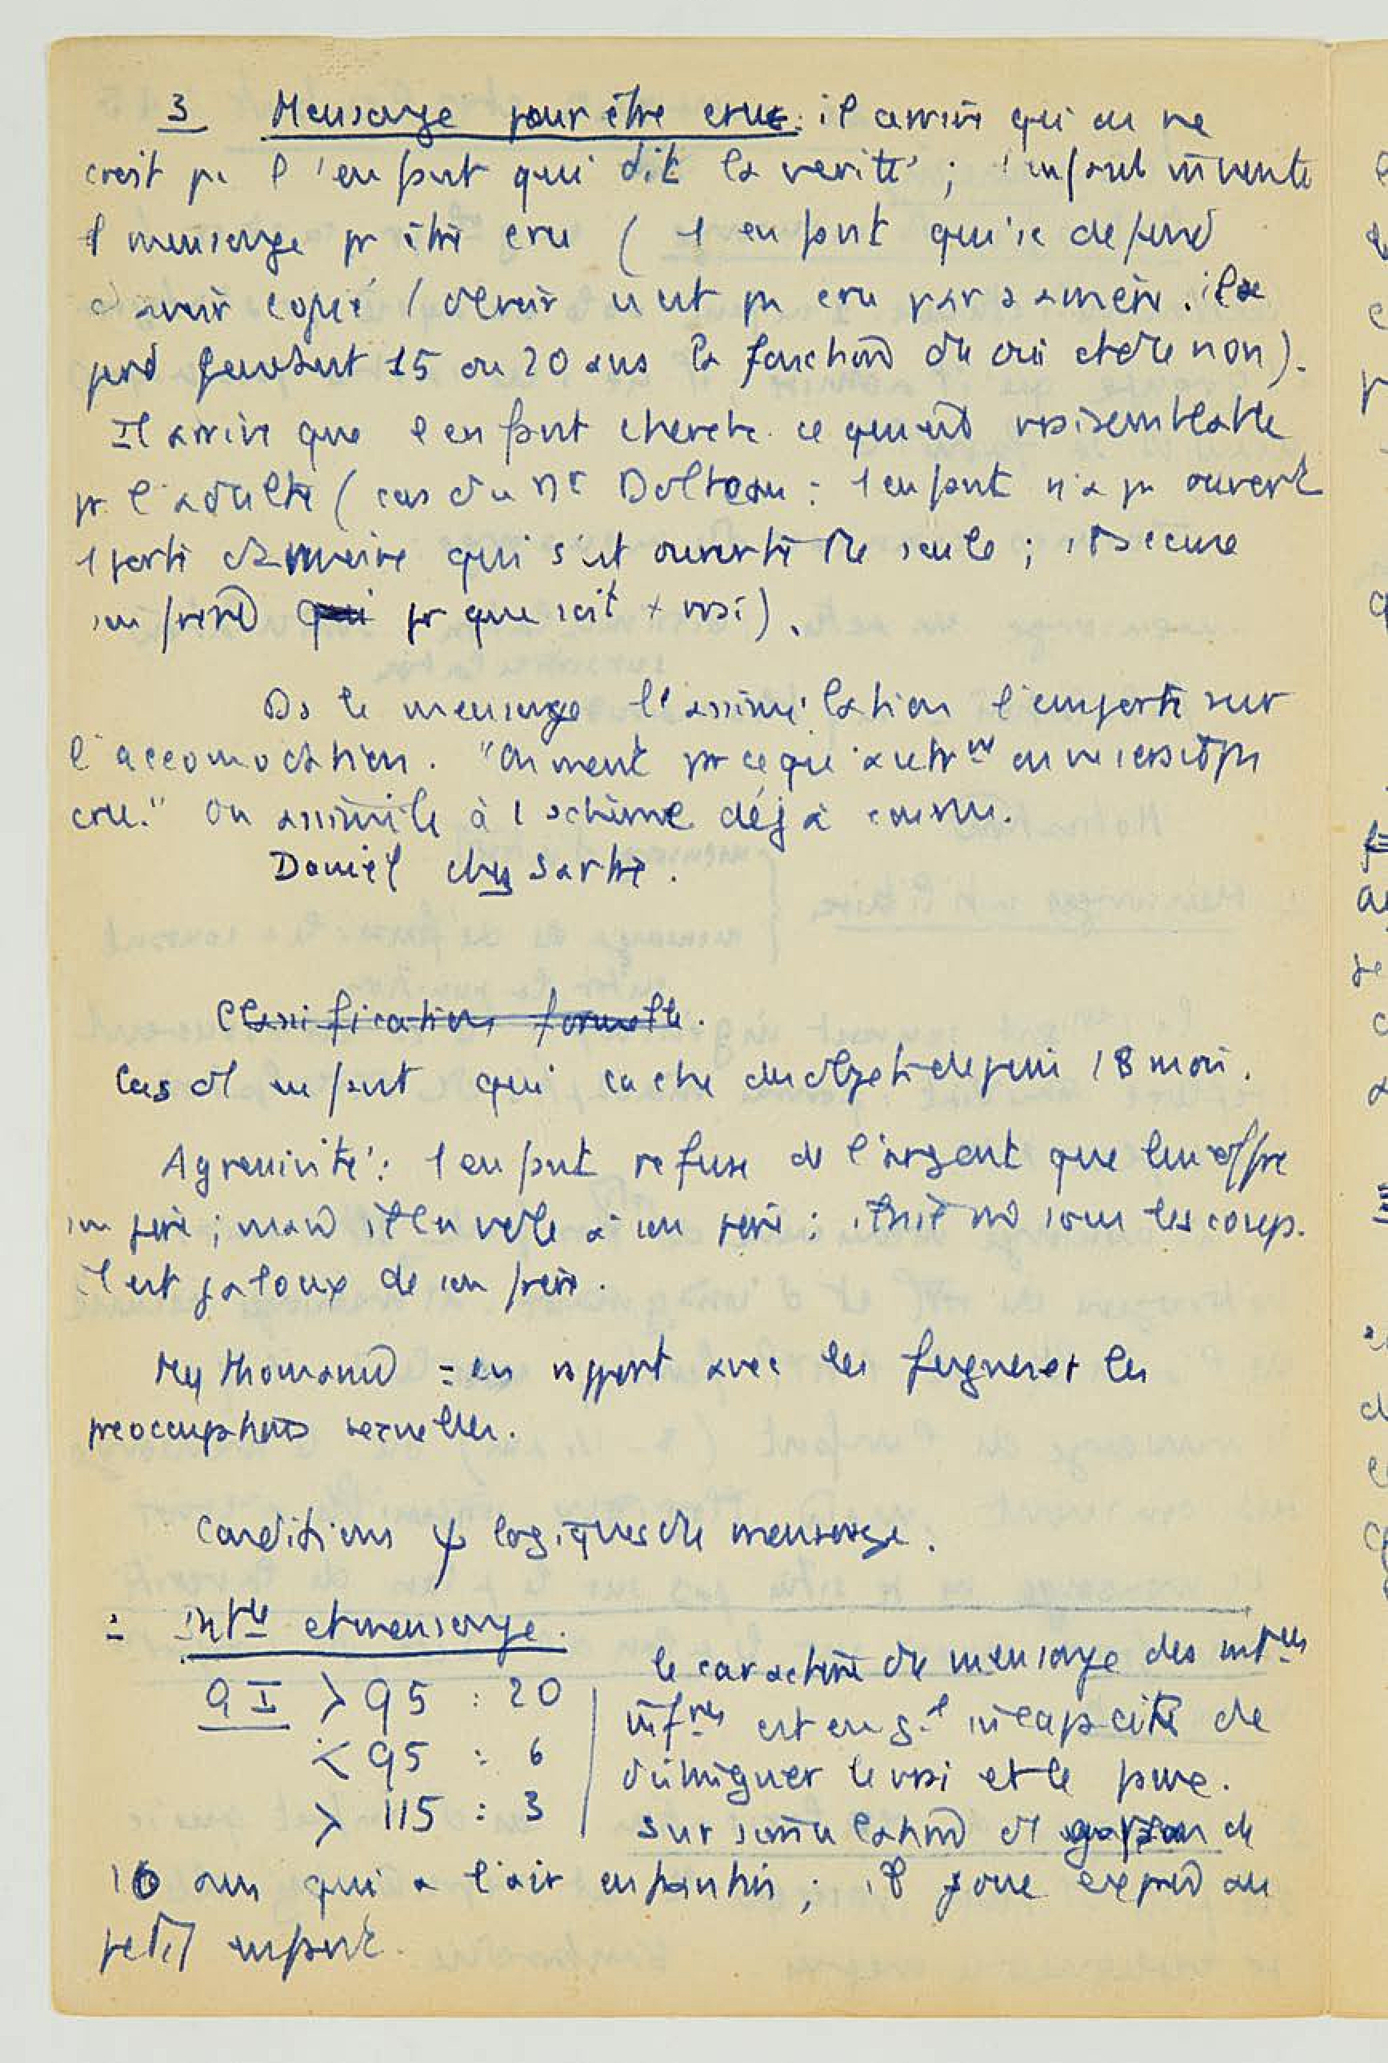 3 Mensonge pour être cru : il arrive qu'on ne
croit pas l'enfant qui dit la vérité ; l'enfant invente
1 mensonge pr être cru ( 1 enfant qui se défend
d'avoir copié 1 devoir n'est pas cru par sa mère. il se
perd pendant 15 ou 20 ans la fonction du oui et du non).
Il arrive que l'enfant cherche ce qui est vraisemblable
pr l'adulte ( cas du Dr : 1 enfant n'a pas ouvert
1 porte d'armoire qui s'est ouverte tte seule ; il accuse
son frère pr que soit + vrai).
Ds le mensonge l'assimilation l'emporte sur
l'accomodation. "On ment parce qu'autrt on ne serait pas
cru." On assimile à 1 schème déjà connu.
Daniel chez Sartre.
Classification formelle.
Cas d'1 enfant qui cache des objets depuis 18 mois.
Agressivité : 1 enfant refuse de l'argent que lui offre
son père ; mais il en vole à son père :
il est jaloux de son frère.
Mythomanie = en rapport avec les fugues et les
préoccupations sexuelles.
Conditions ψ logiques du mensonge.
Intce et mensonge.
QI > 95 : 20
< 95 : 6
> 115 : 3
le caractère du mensonge des intces
infres est en gal incapacité de
distinguer le vrai et le faux.
Sursimulation d'1 garçon de
16 ans qui a l'air enfantin ; il joue exprès au
petit enfant.